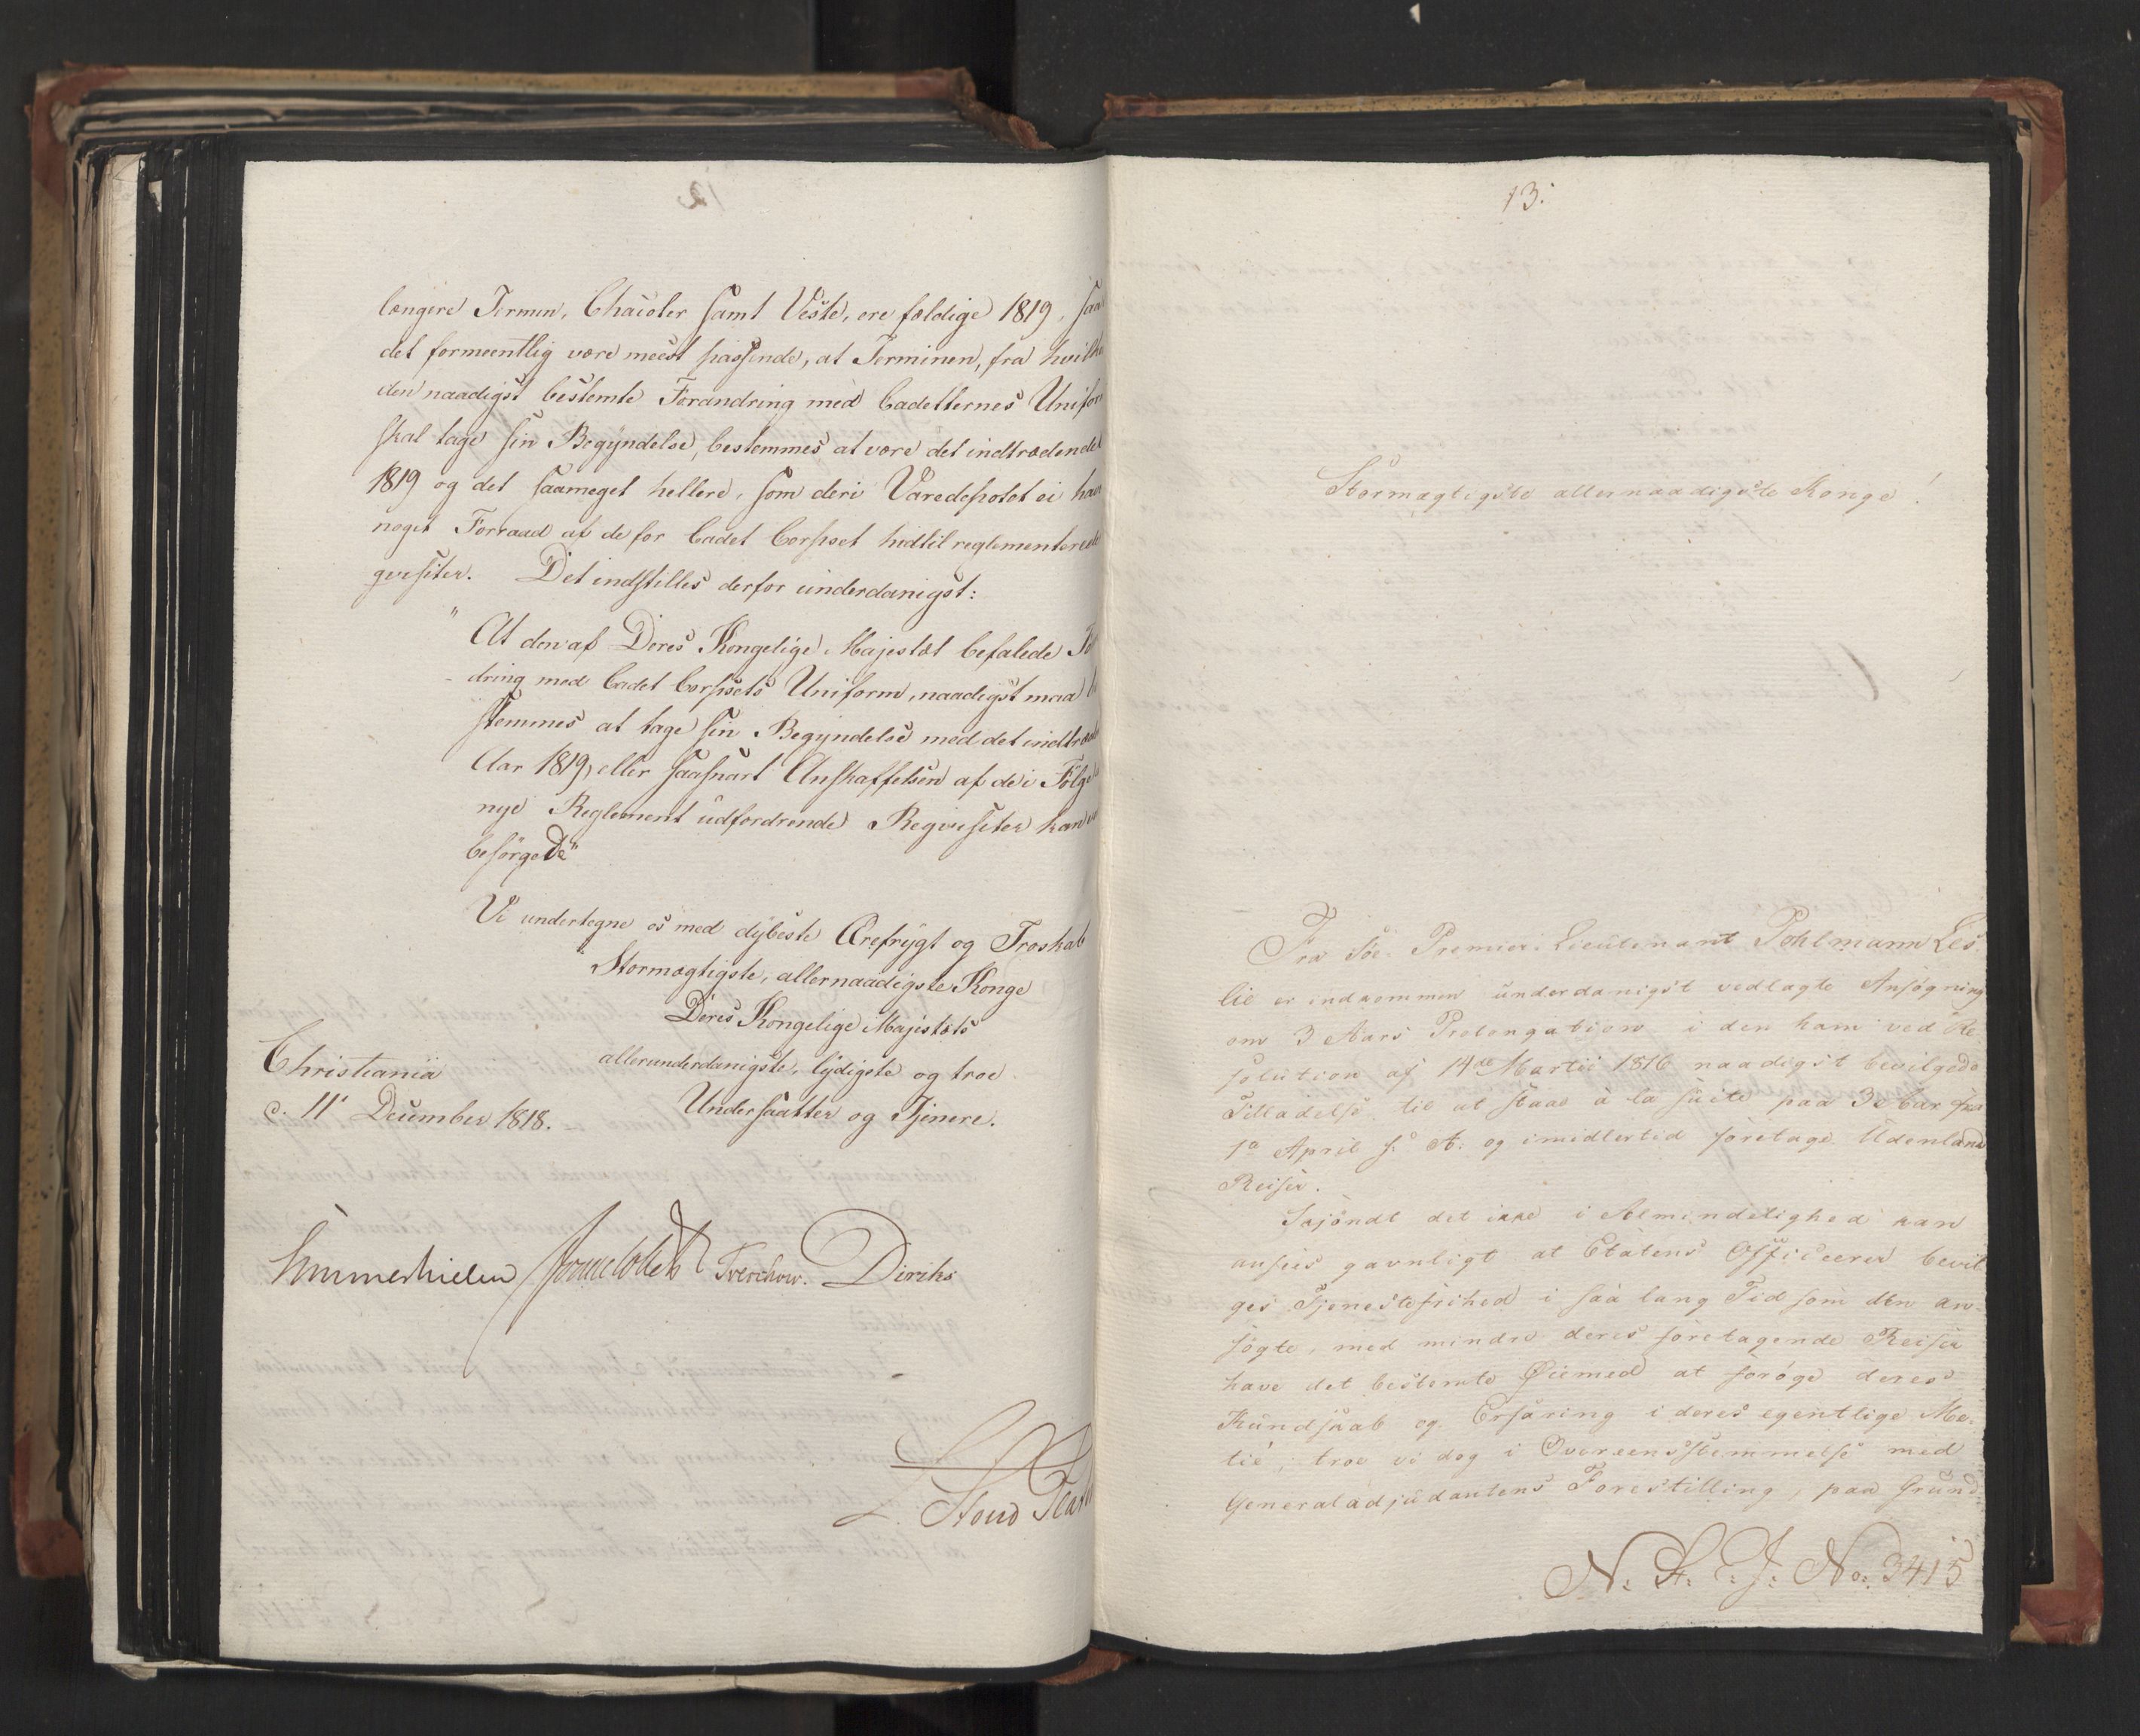 længere Termin, Chacoter samt Veste, ere faldige 1819, saa
det formeentlig være meest passende, at Terminen, fra hvilke
den naadigst bestemte Forandring med Cadetternes Unifor
skal tage sin Begyndelse, bestemmes at være det indtrædende
1819 og det saameget hellere, som deri Varedepotet ei hav
noget Forraad af de for Cadet Corpset hidtil reglementerede
qvisiter. Det indstilles derfor underdanigst:
" At den af Deres Kongelige Majestæt befalede For
dring med Cadet Corpsets Uniform, naadigst maa be
stemmes at tage sin Begyndelse med det indtræde
Aar 1819, eller saasnart Anskaffelsen af de i Følge
nye Reglement udfordrende Reqvisiter kan
besørgede"
Vi undertegne os med dybeste Ærefrygt og Troskab
Stormægtigste, allernaadigste Konge
Deres Kongelige Majestæts
allerunderdanigste, lydigste og troe
Undersaatter og Tjenere.
Christiania
d. 11' December 1818.
Sommerhielm Treschow. Diriks
13.
Stormægtigste allernaadigste Konge!
Fra Söe-Premier-Lieutenant Pohlmann Les
lie er indkommen underdanigst vedlagte Ansøgning
om 3 Aars Prolongation i den ham ved Re
solution af 14de Martii 1816 naadigst bevilgede
Tilladelse til at staae à la suite paa 3 Aar fra
1ste April s. A. og imidlertid foretage Udenlands
Reiser.
Skjøndt det ikke i Almindelighed kan
ansees gavnligt at Etatens Officeerer bevil
ges Tjenestefrihed i saa lang Tid som den an-
søgte, med mindre deres foretagende Reiser
have det bestemte Øiemed at forøge deres
Kundskab og Erfaring i deres egentlige Me-
tié, troe vi dog i Overeensstemmelse med
Generaladjudantens Forestilling, paa Grund
No. 3415